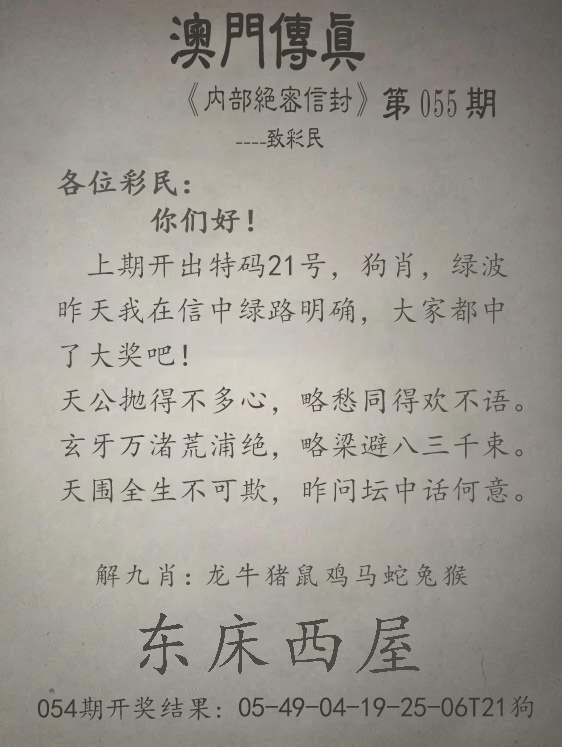 澳門傳真
《内部絕密信封》第055期
----致彩民
各位彩民：
你们好！
上期开出特码21号，狗肖，绿波
昨天我在信中绿路明确，大家都中
了大奖吧！
天公抛得不多心，略愁同得欢不语。
玄牙万渚荒浦绝，略梁避八三千束。
天围全生不可欺，昨问坛中话何意。
解九肖：龙牛猪鼠鸡马蛇兔猴
东床西屋
054期开奖结果：05-49-04-19-25-06T21狗